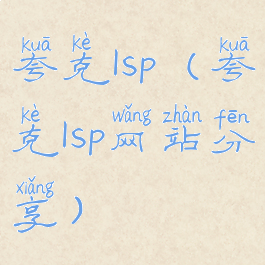 kuā kè
夸克lsp（夸
kuā
kè wǎng zhàn fēn
克lsp网站分
xiǎng
享）